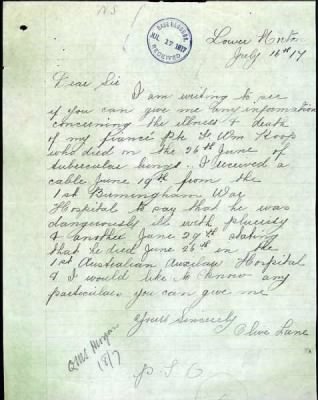 BASE RECORDS
JUL 17 1917
RECEIVED
Lower
July 16th 17
Dear Sir
I am writing to see
if you can give me any information
concerning the illness & death
of my fiancé Pte Wm Koop
who died on the 26th June of
tubercular lungs. I received a
cable June 19th from the
1st Birmingham War
Hospital to say that he was
dangerously ill with pluerisy
& another June 29th stating
that he died June 26th in the
1st Australian Auxilary Hospital
& I would like to know any
particulars you can give me
Yours Sincerely
Olive Lane
QMS Morgan
18/7
P.T.O